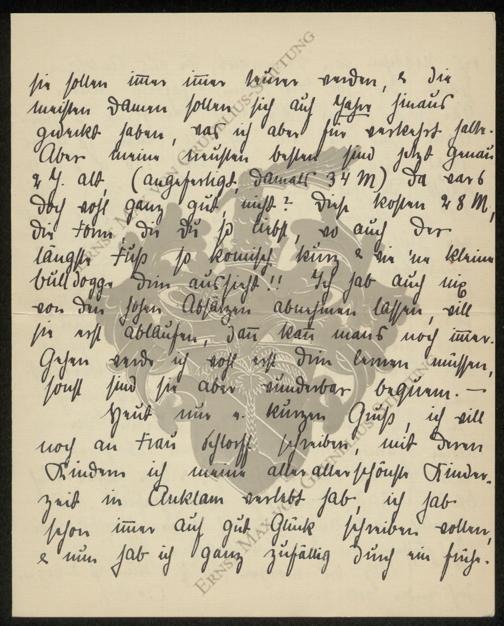 sie sollen immer immer teurer werden, & die
meisten Damen sollen sich auf Jahre hinaus
gedeckt haben, was ich aber für verkehrt halte.
Aber meine neusten besten sind jetzt genau
2 J. alt, (angefertigt damals 34 M) da wars
doch wohl ganz gut, nicht? Diese kosten 28 M,
die Form, die Du so liebst, wo auch der
längste Fuß so komisch kurz & wie 'ne kleine
bulldogge drin aussieht!! Ich hab auch nix
von den hohen Absätzen abnehmen lassen, will
sie erst ablaufen, dann kann mans noch immer.
Gehen werde ich wohl erst drin lernen müssen,
sonst sind sie aber wunderbar bequem. —
Heut nur e. kurzen Gruß, ich will
noch an Frau Schlorff schreiben, mit deren
Kindern ich meine allerallerschönste Kinder-
zeit in Anklam verlebt hab, ich hab
schon immer auf gut Glück schreiben wollen,
& nun hab ich ganz zufällig durch ein früh.
ERNST MAX VON GRUNELIUS-STIFTUNG
ERNST MAX VON GRUNELIUS-STIFTUNG